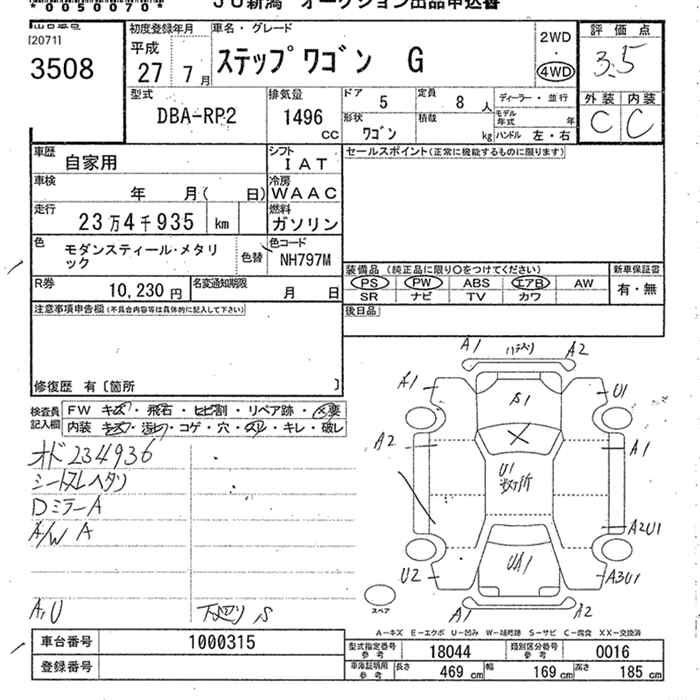 *0050070*
JU新潟 オークション出品申込書
[2071]
3508
初度登録年月
平成
27 7月
車名・グレード
ステップワゴン G
2WD
・
4WD
評価点
3.5
外装 内装
C C
型式
DBA-RP2
排気量
1496
CC
ドア
5
定員
8人
ディーラー・並行
形状
ワゴン
積載
kg
モデル年式 年
ハンドル 左・右
車歴
自家用
シフト
IAT
セールスポイント(正常に機能するものに限ります)
車検
年 月( 日)
冷房
WAAC
走行
23万4千935 km
燃料
ガソリン
色
モダンスティール・メタリ
ック
色替
色コード
NH797M
装備品 (純正品に限り○をつけてください)
PS PW ABS エアB AW
SR ナビ TV カワ
新車保証書
有・無
R券
10,230円
名変通知期限
月 日
後日品
注意事項申告欄(不具合内容等は具体的に記入して下さい)
修復歴 有〔箇所 〕
検査員
記入欄
FW キズ・飛石・ヒビ割・リペア跡・要
内装 キズ・汚レ・コゲ・穴・スレ・キレ・破レ
オド234936
シートスレヘタリ
DミラーA
A/W A
A,U
下廻り S
A1 A2
A1 S1 U1
A2 A1
U1
数ヶ所
A2U1
U2 UA1 A3U1
スペア
A1 A2
A-キズ E-エクボ U-凹み W-補修跡 S-サビ C-腐食 XX-交換済
車台番号
1000315
登録番号
型式指定番号
参考
18044
類別区分番号
参考
0016
車庫証明用
参考
長さ 469 cm 幅 169 cm 高さ 185 cm